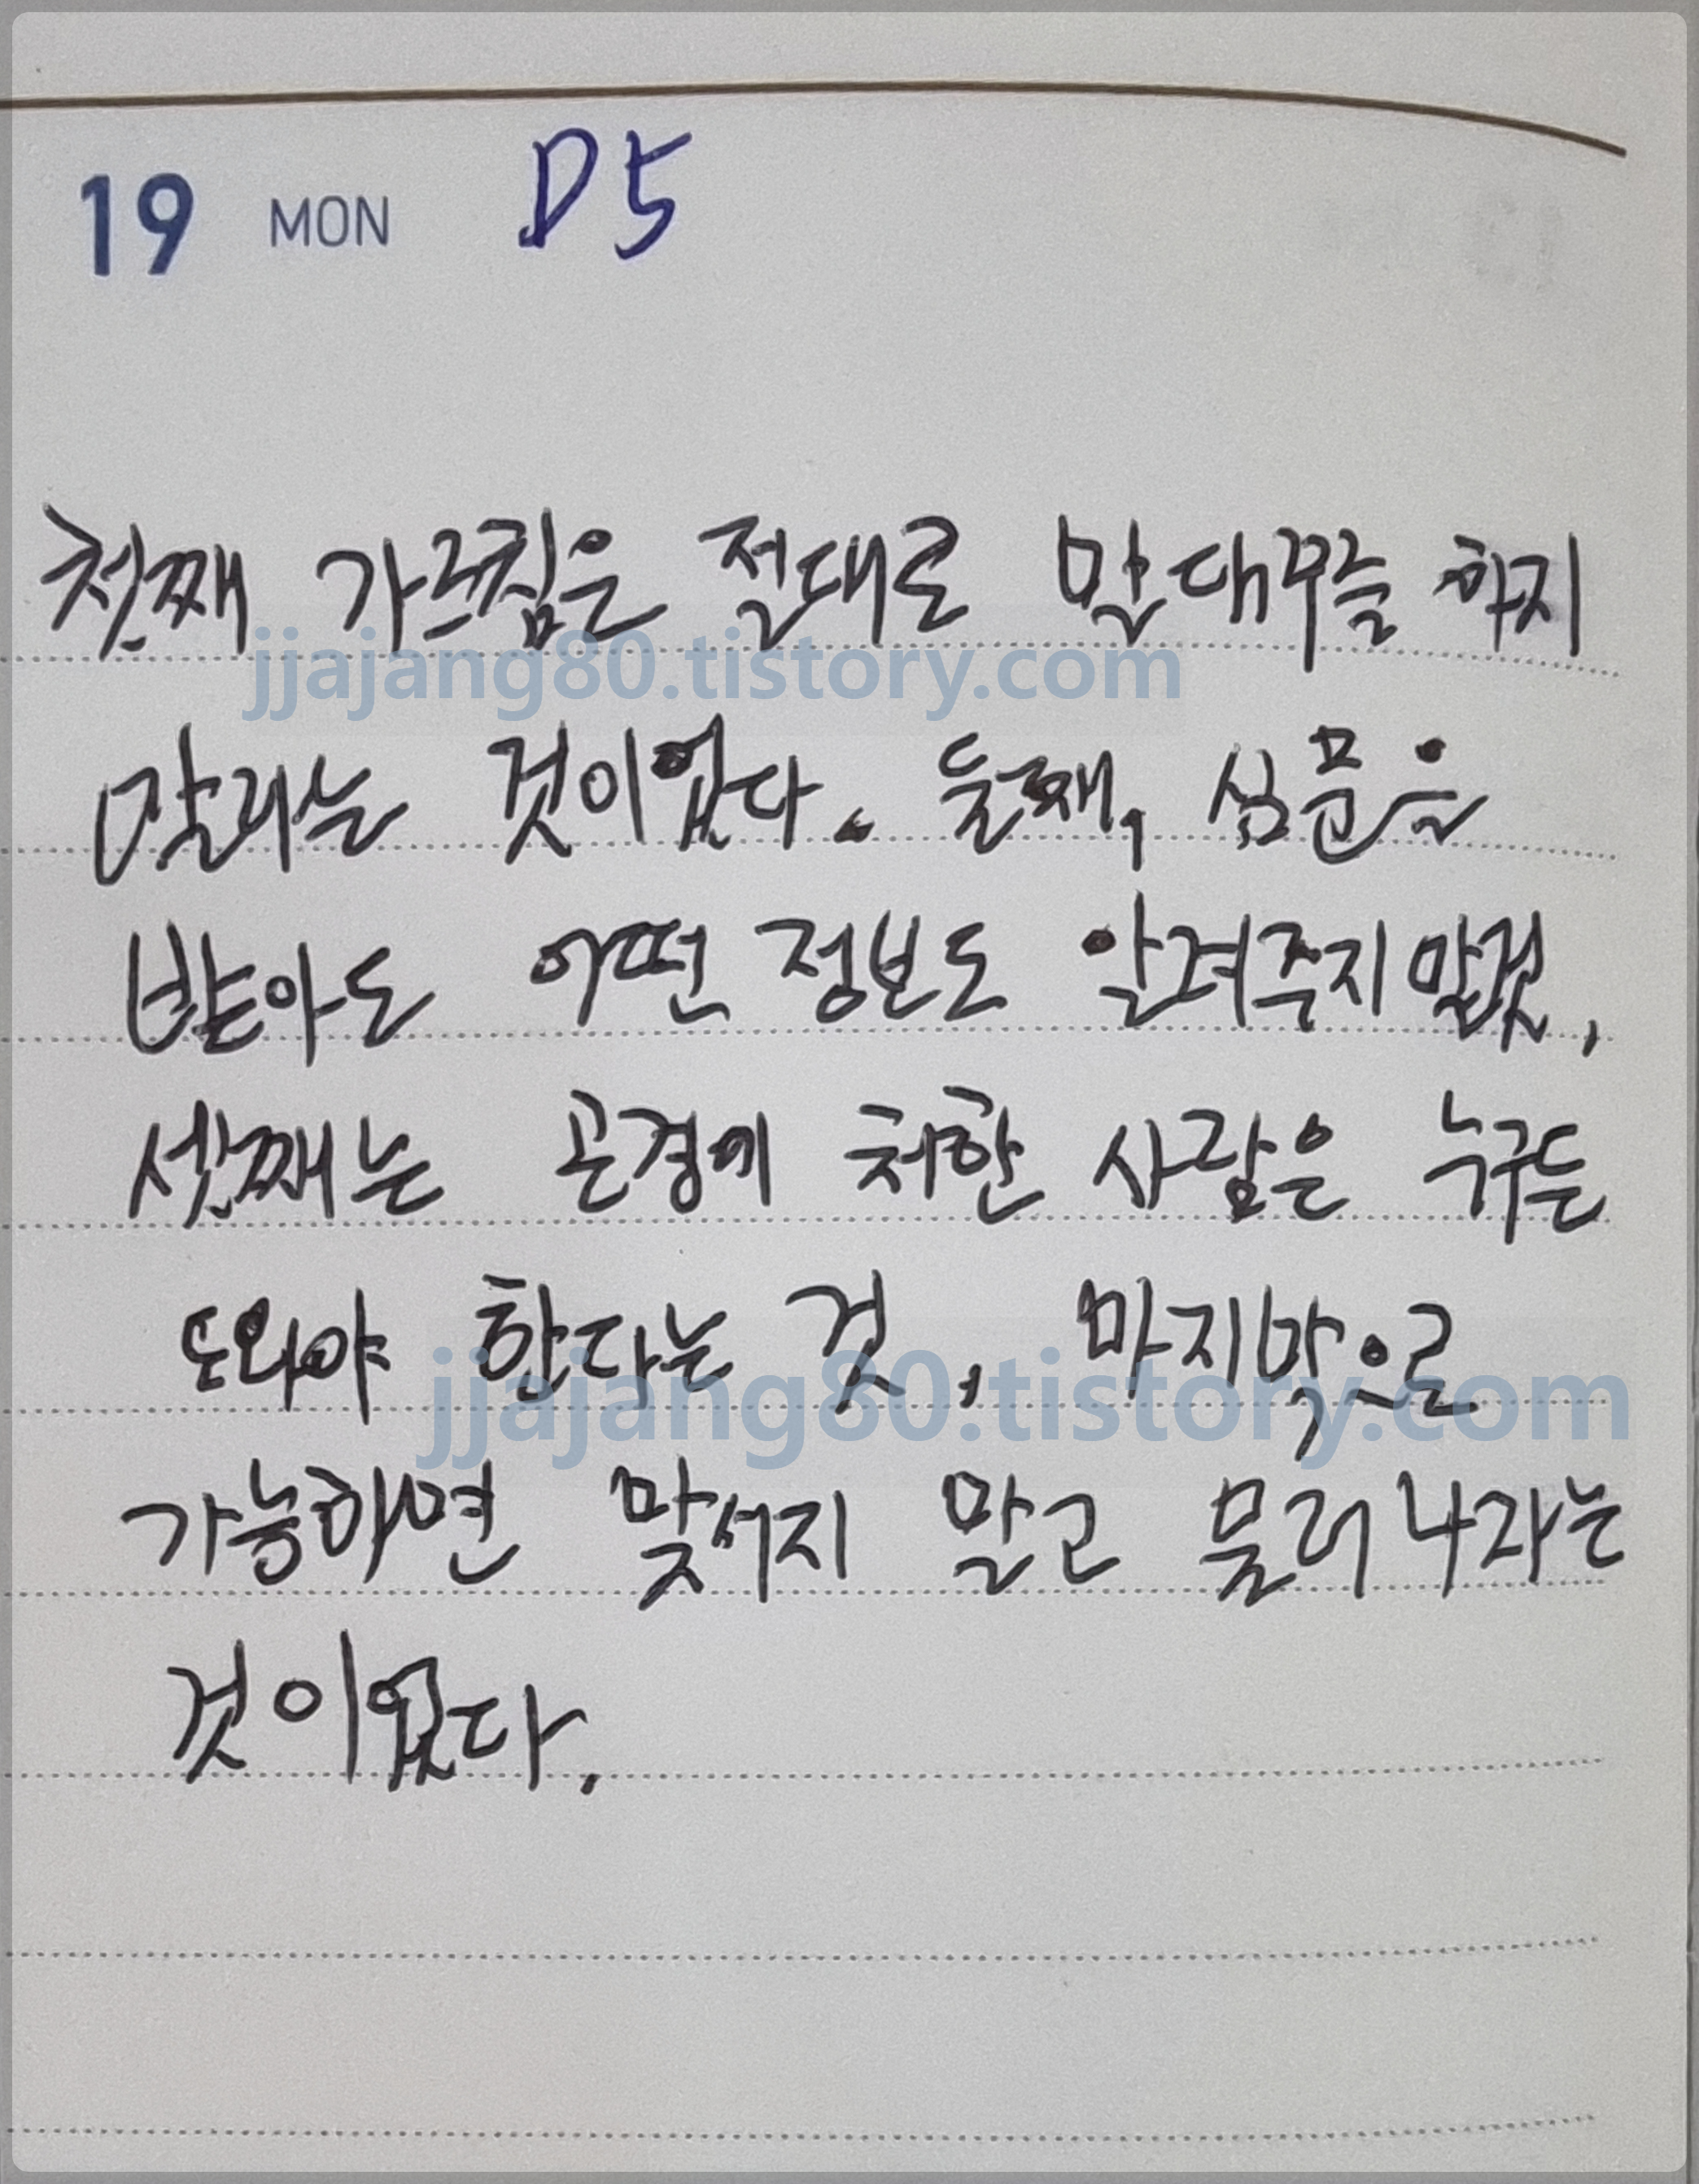 19 MON D5
첫째 가르침은 절대로 말대꾸를 하지
jjajang80.tistory.com
말라는 것이었다. 둘째, 심문을
받아도 어떤 정보도 알려주지 말것,
셋째는 곤경에 처한 사람은 누구든
도와야 한다는 것, 마지막으로
jjajang80.tistory.com
가능하면 맞서지 말고 물러나라는
것이었다.